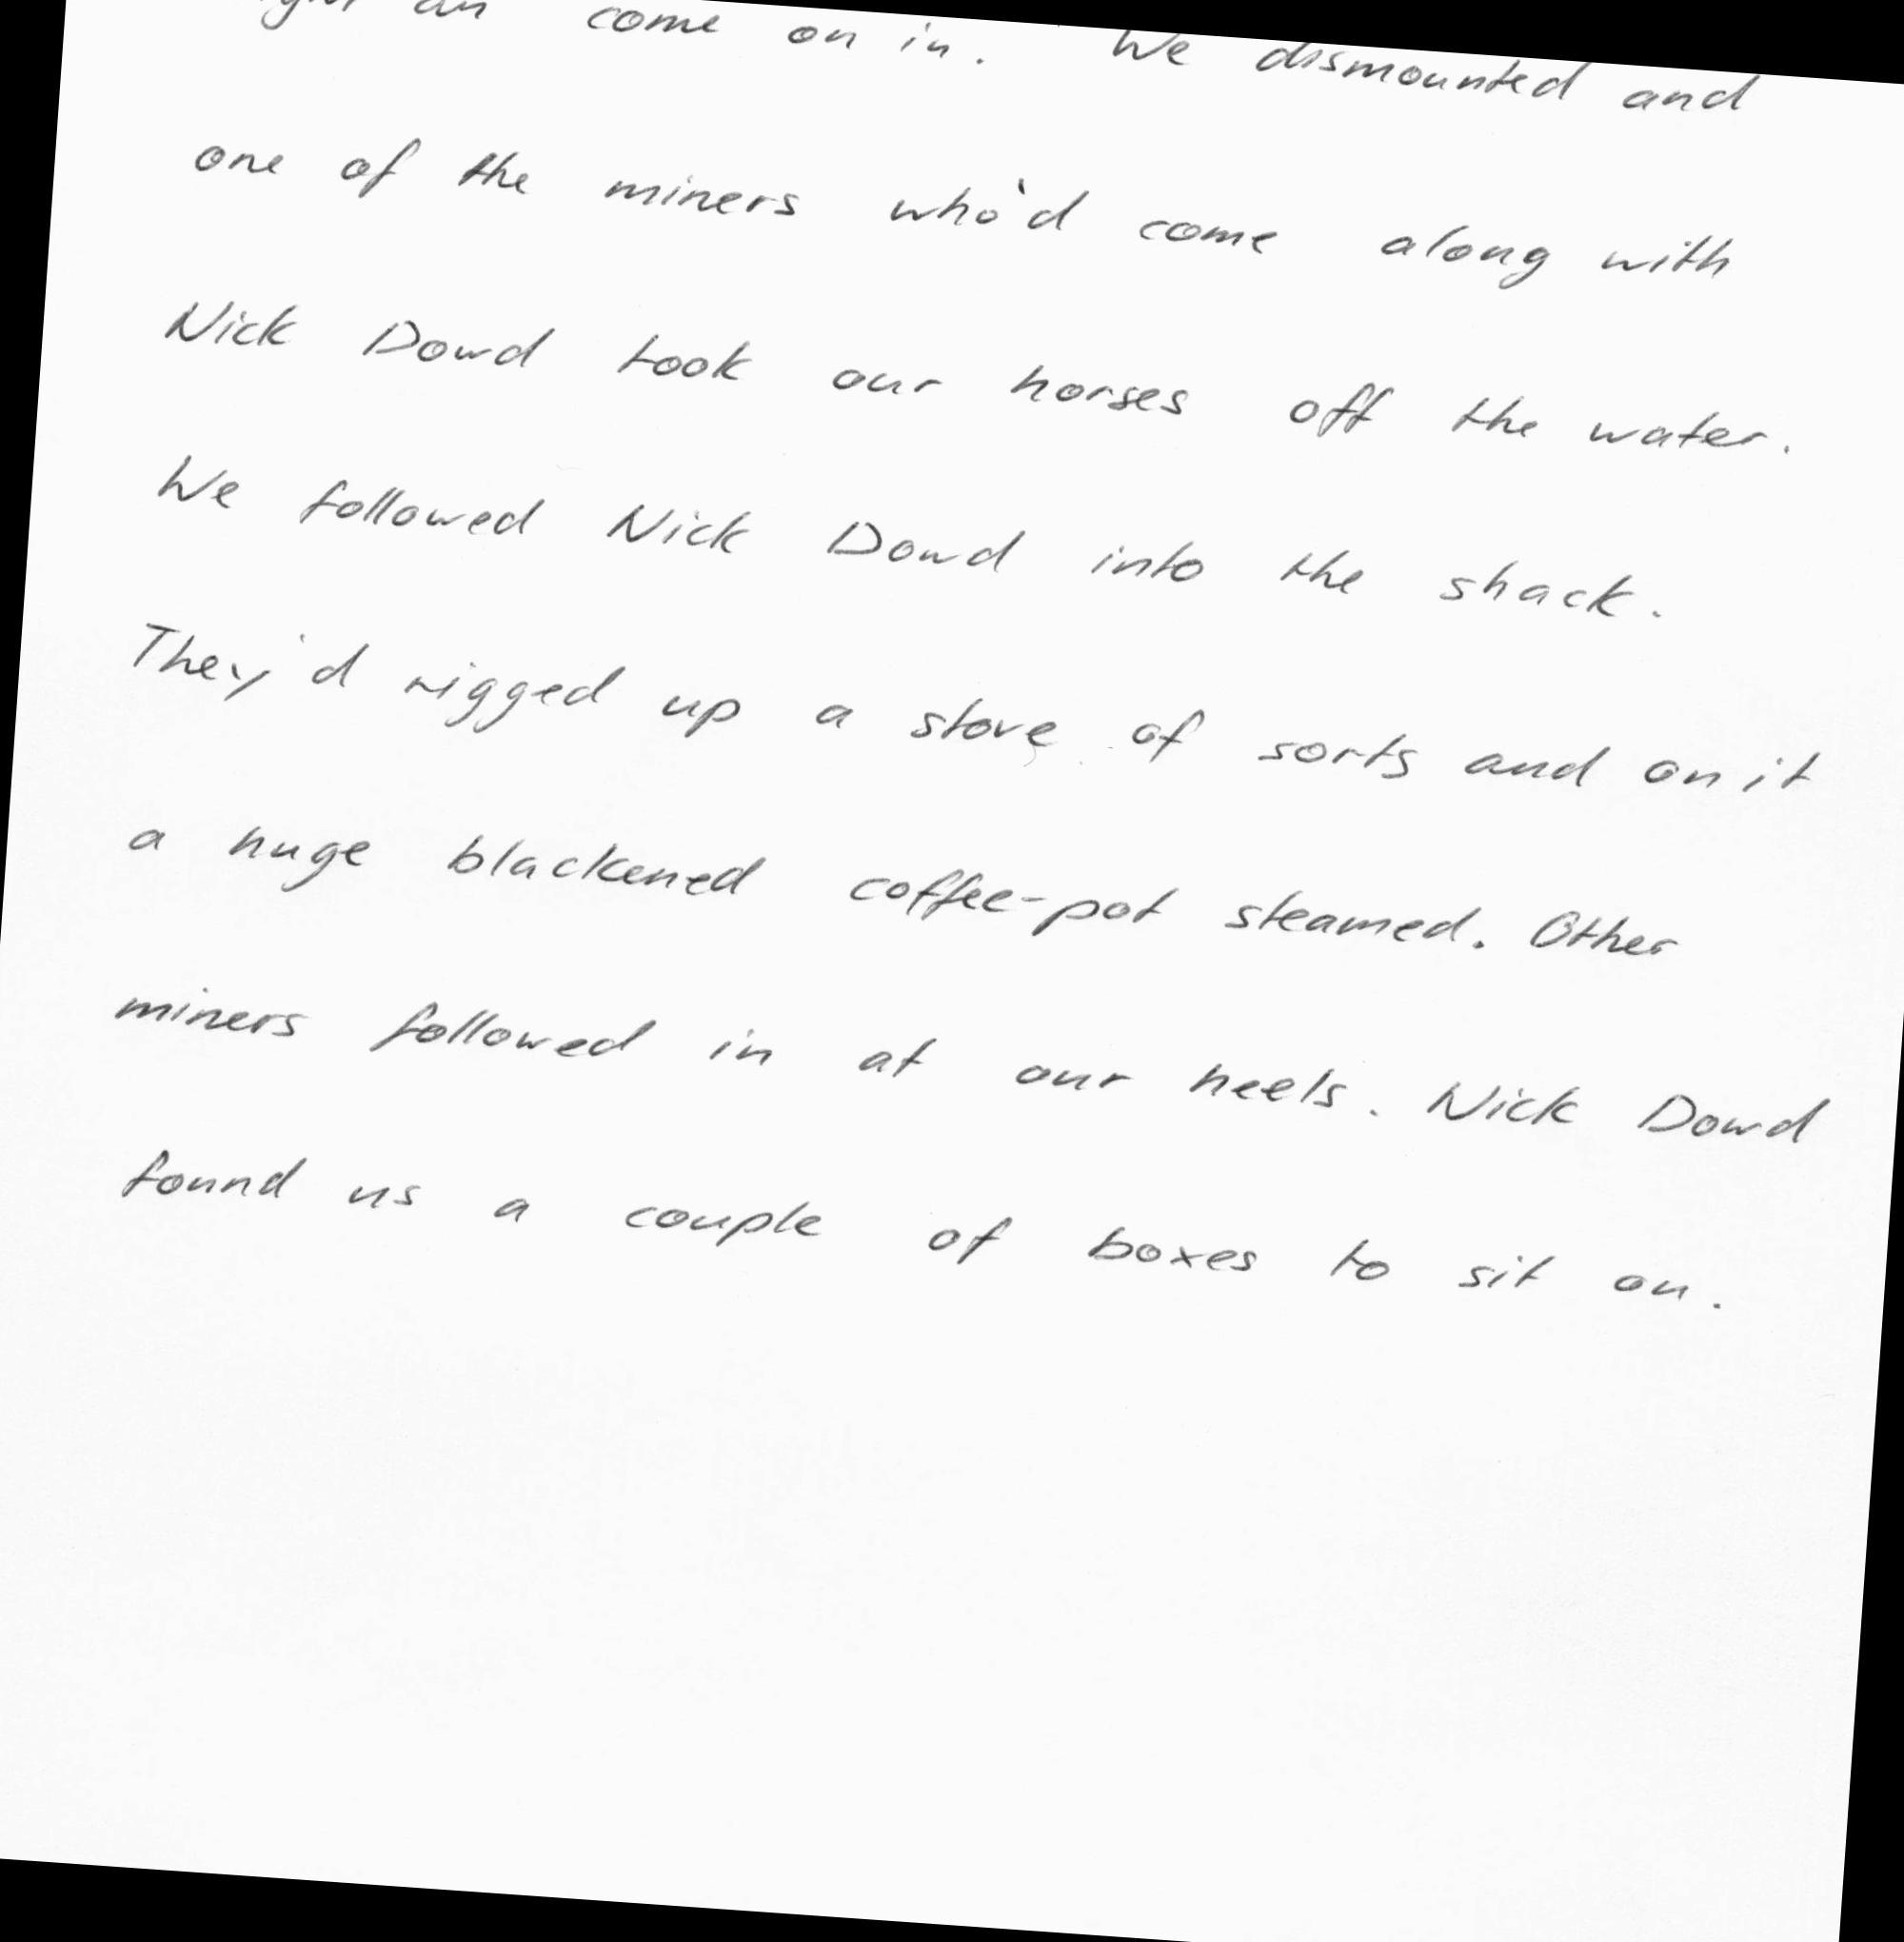 an come on in. We dismounted and
one of the miners who'd come along with
Nick Dowd took our horses off the water.
We followed Nick Dowd into the shack.
They'd rigged up a stove of sorts and on it
a huge blackened coffee-pot steamed. Other
miners followed in at our heels. Nick Dowd
found us a couple of boxes to sit on.